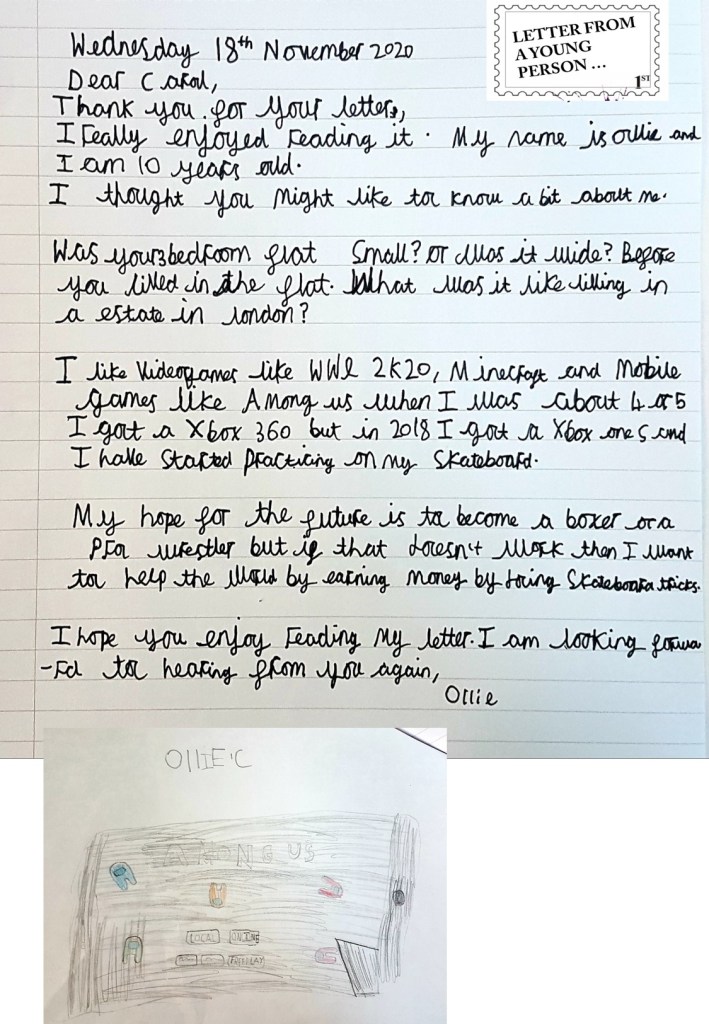 LETTER FROM
A YOUNG
PERSON ...
1ST
Wednesday 18th November 2020
Dear Carol,
Thank you for your letter,
I really enjoyed reading it. My name is ollie and
I am 10 years old.
I thought you might like to know a bit about me.
Was your 3 bedroom flat Small? or was it wide? Before
you lived in the flat. What was it like living in
a estate in london?
I like Videogames like WWE 2K20, Minecraft and Mobile
games like Among us when I was about 4 or 5
I got a Xbox 360 but in 2018 I got a Xbox one S and
I have started practicing on my skateboard.
My hope for the future is to become a boxer or a
pro wrestler but if that doesn't work then I want
to help the world by earning money by doing skateboard tricks.
I hope you enjoy reading my letter. I am looking forwa
-rd to hearing from you again,
Ollie
OllIE'C
AMONG US
LOCAL ONLINE
FREEPLAY